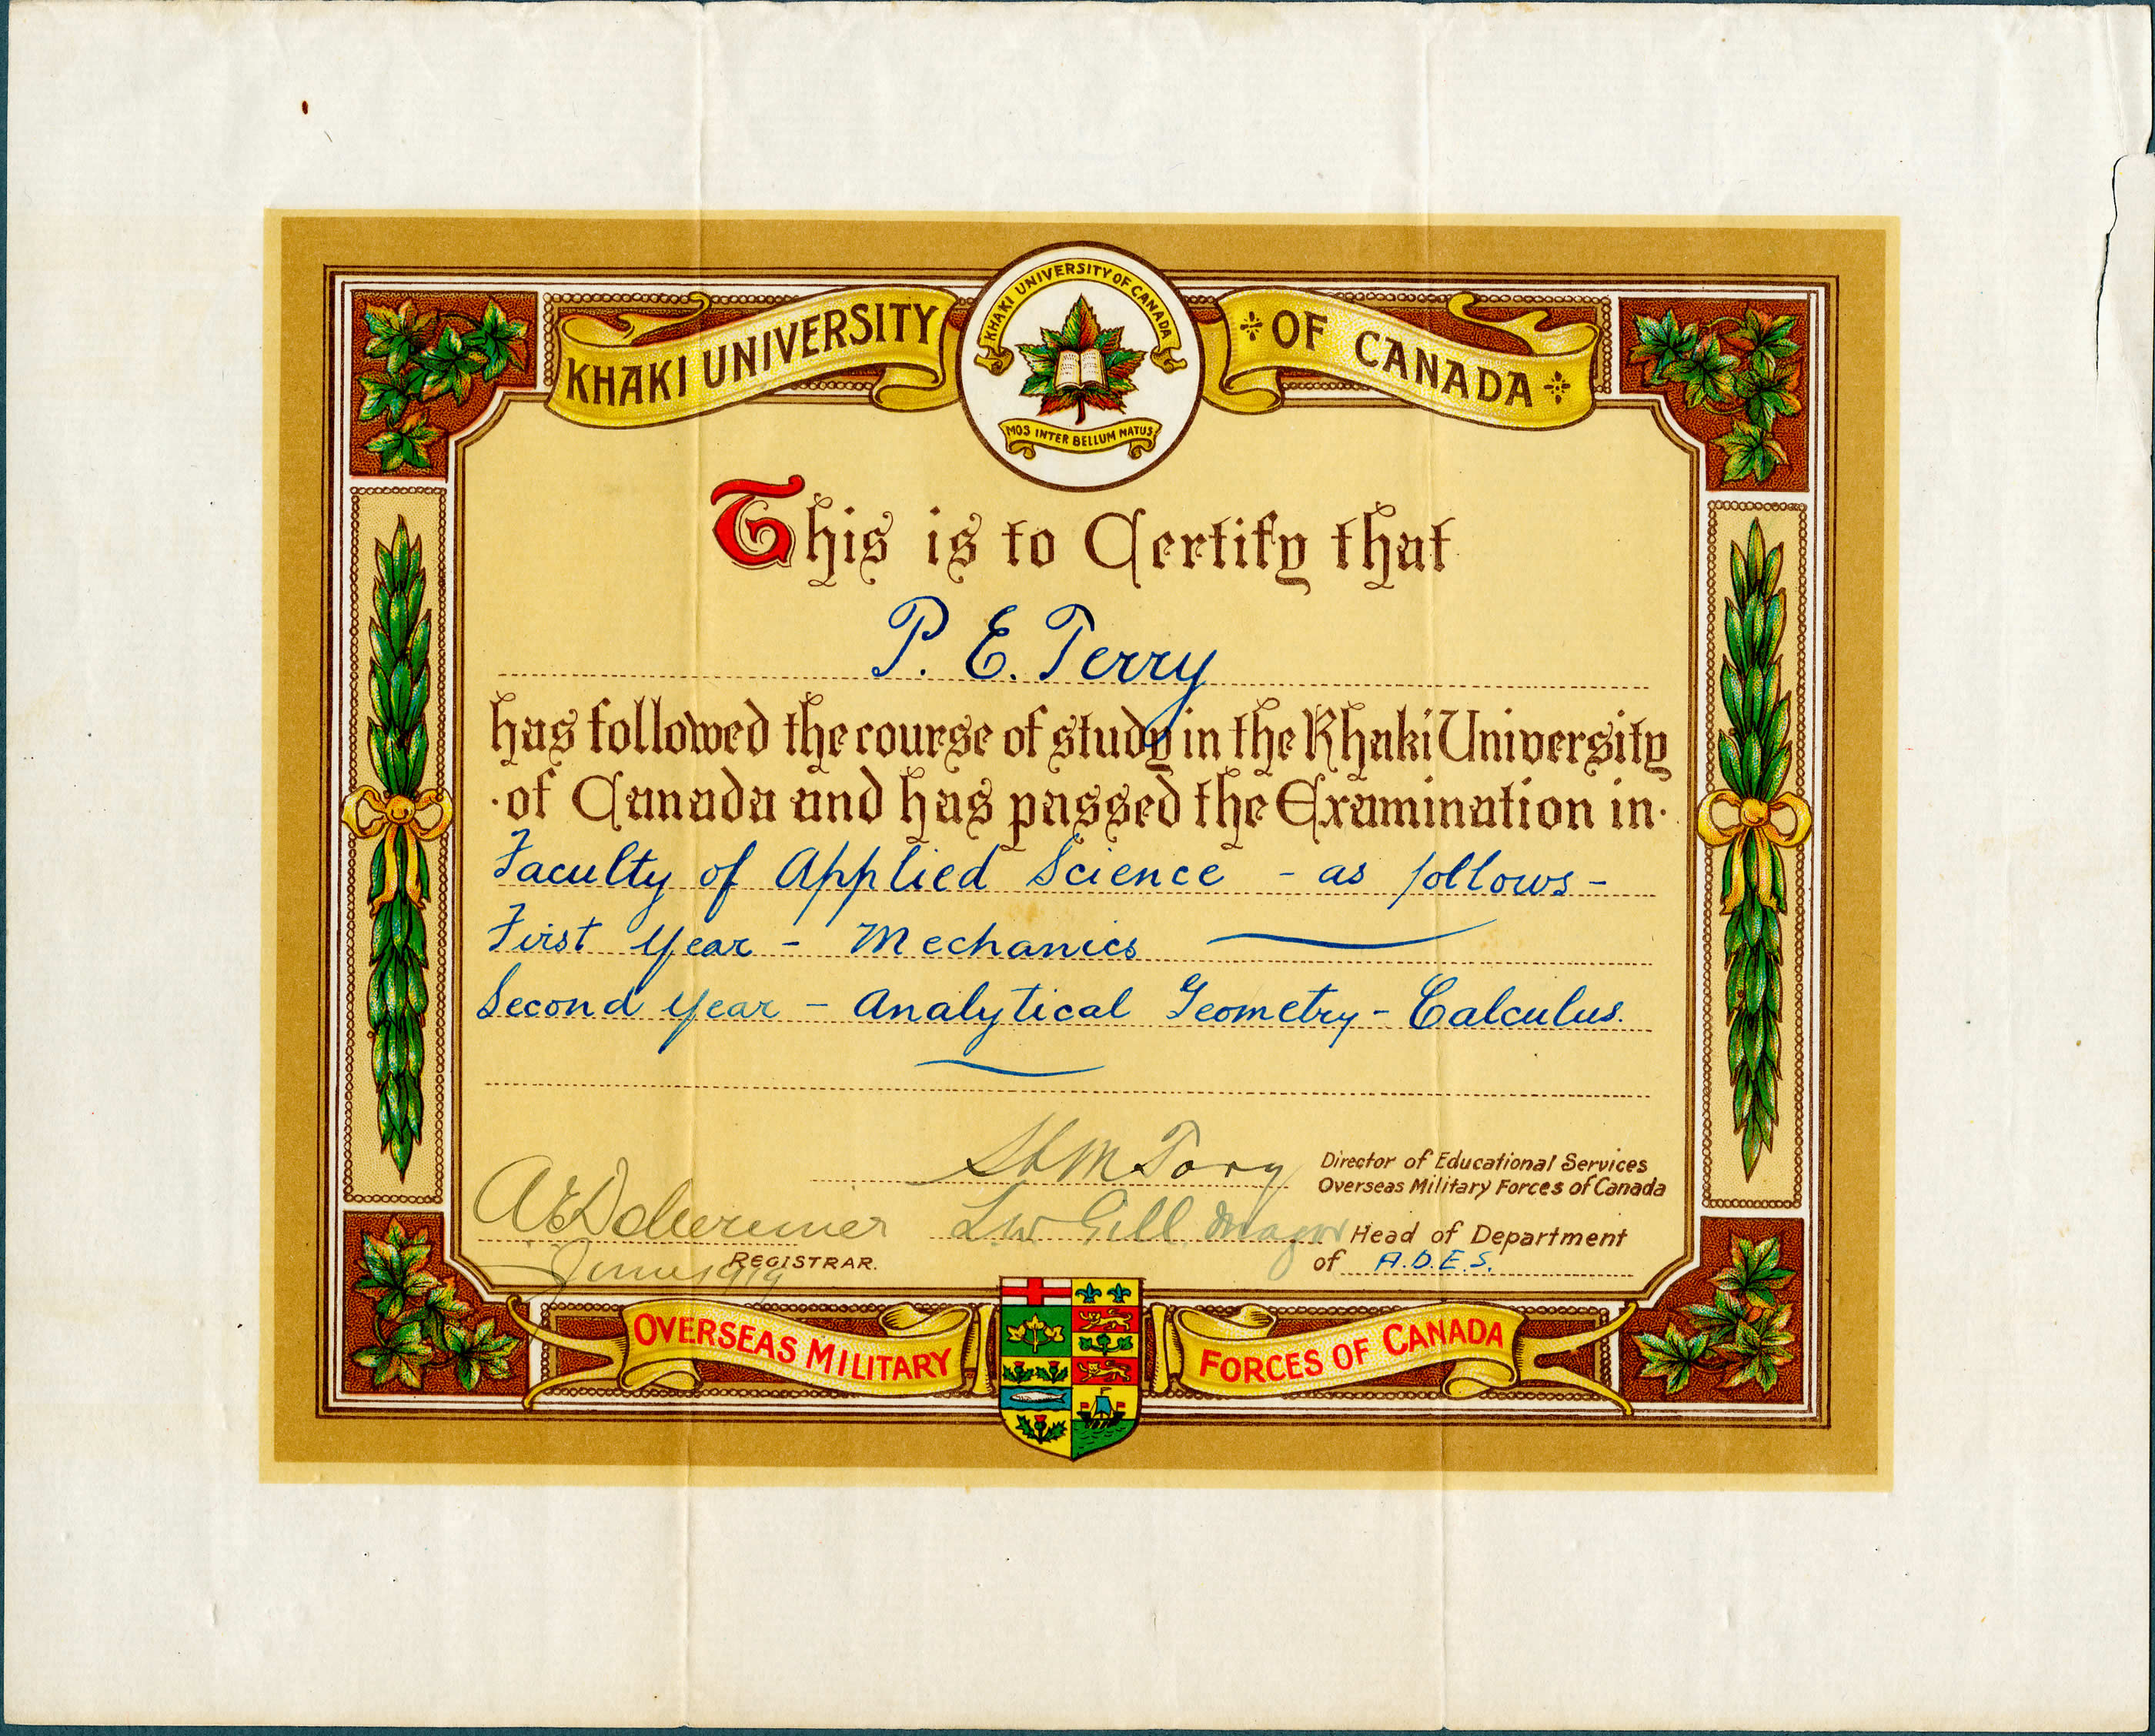 KHAKI UNIVERSITY OF CANADA
KHAKI UNIVERSITY OF CANADA
MOS INTER BELLUM NATUS
This is to Certify that
P. E. Terry
has followed the course of study in the Khaki University
of Canada and has passed the Examination in
Faculty of Applied Science - as follows -
First Year - Mechanics
Second Year - Analytical Geometry - Calculus.
H M Tory
Director of Educational Services
Overseas Military Forces of Canada
L W Gill Major
Head of Department
of A.D.E.S.
REGISTRAR.
June 1919
OVERSEAS MILITARY FORCES OF CANADA